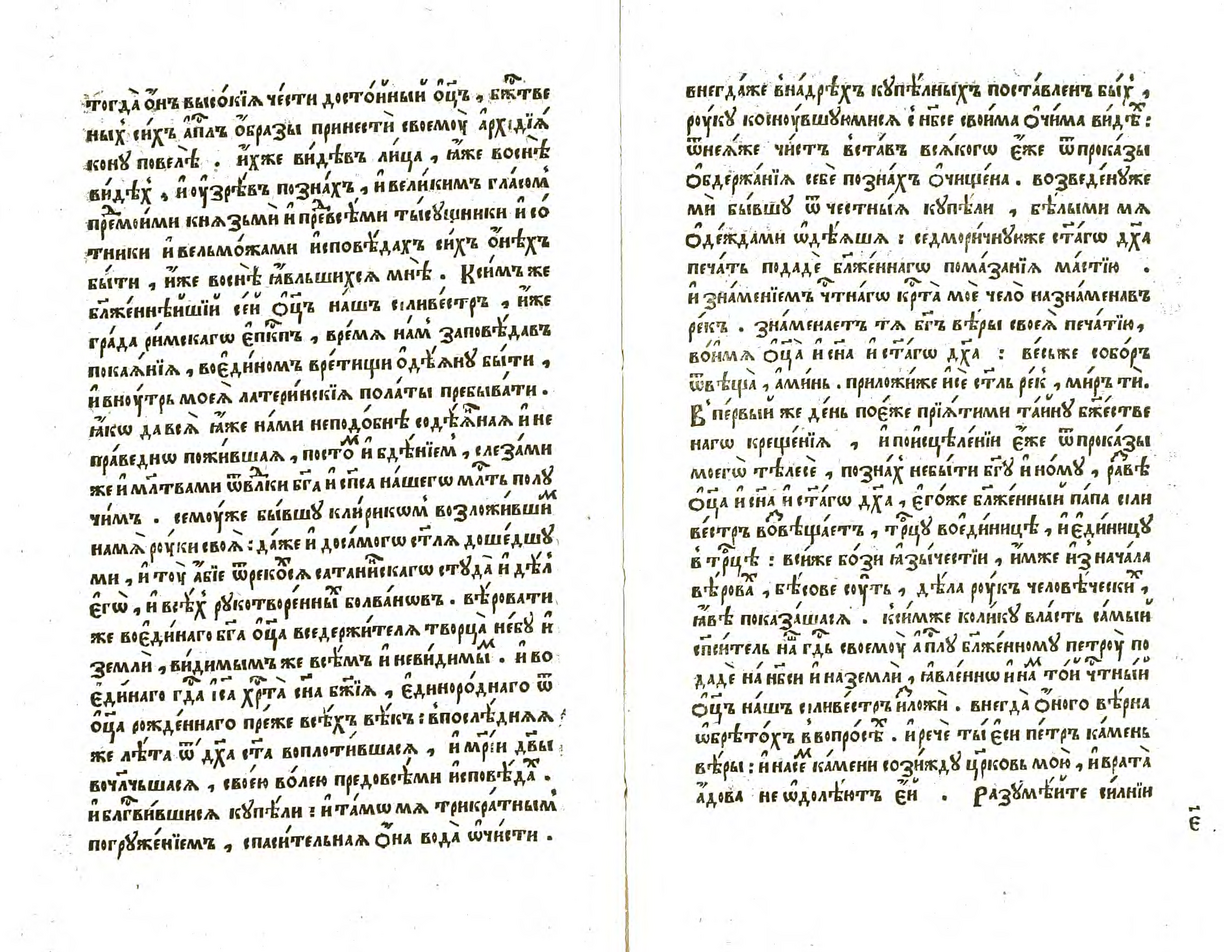 тогда̀ о҆́нъ высо́кїѧ че́сти досто́йный ѻ҆ц҃ъ , бж҃тве
ны́х си́хъ а҆п҃лъ о҆́бразы принестѝ своемоꙋ̀ а҆рхїдїа̀
кону повелѣ̀ . и҆́хже ви́дѣвъ ли́ца , ꙗ҆́же воснѣ̀
ви́дѣх , и҆оу҆зрѣ́въ позна́хъ , и҆вели́кимъ гла́сом
пре́мои́ми кнѧзьмѝ и҆преⷣвсѣ́ми ты́сꙋщники и҆ со́
тники и҆вельмо́жами и҆сповѣ́дахъ си́хъ ѻ҆нѣ́хъ
бы́ти , и҆́же воснѣ̀ ꙗ҆́вльшихсѧ мнѣ̀ . Ксим́ъ же
бл҃же́ннѣйшїй се́й ѻ҆ц҃ъ на́шъ сїливе́стръ , и҆́же
гра́да ри́мскагѡ є҆пⷭ҇кпъ , вре́мѧ на́м запове́давъ
покаѧ́нїѧ , воє҆ди́номъ вре́тищи ѻ҆дѣ́ѧну бы́ти ,
и҆вноу́трь моеѧ̀ латери́нскїѧ пола́ты пребыва́ти .
ꙗ҆́кѡ да всѧ̀ ꙗ҆́же на́ми неподо́бнѣ содѣ́ѧнаѧ и҆ не
пра́веднѡ пожи́вшаѧ , посто́м и҆ бдѣ́нїем , слеза́ми
же и҆ мл҃твами ѿвлⷣки бг҃а и҆ сп҃са на́шегѡ мл҇ть полу
чи́мъ . семоу́же бы́вшу кли́рикѡм возложи́вшим
намѧ̀ ро́ꙋки своѧ̀ : да́же и҆ доса́могѡ ст҃лѧ доше́дшу
ми , и҆ тоу̀ а҆́бїе ѿреко́хсѧ сатани́нскагѡ сту́да и҆ дѣ́л
є҆гѡ̀ , и҆ всѣ́х рукотворе́нны болва́нѡвъ . вѣ́ровати
же воє҆ди́наго бг҃а ѻ҆ц҃а вседержи́телѧ творца̀ не́бу и҆
землѝ , ви́димымъ же всѣ́мъ и҆ неви́димым . и҆ во
є҆ди́наго гд҇а і҆са хр҇та̀ сн҃а бж҃їѧ , є҆диноро́днаго ѿ
ѻ҆ц҃а рожде́ннаго пре́же всѣ́хъ вѣ́къ : впослѣ́днѧѧ
же лѣ́та ѿ дх҃а ст҃а воплоти́вшасѧ , и҆ мр҃їи дв҃ы
вочл҃чьшасѧ , свое́ю во́лею предовсѣ́ми и҆сповѣ́дах .
и҆ бл҃гви́вшисѧ купѣ́ли : и҆ та́мѡ мѧ трикра́тным
погруже́нїемъ , спаси́тельнаѧ ѻ҆́на вода̀ ѡ҆чи́сти .
внегда́же внѧ́дрѣхъ купѣ́лныхъ поста́вленъ бы́х ,
роу́ку косноу́вшуюмисѧ с нб҃се свои́ма ѻ҆чи́ма ви́дѣх :
ѿнеѧ́же чи́стъ вста́въ всѧ́когѡ є҆́же ѿпрока́зы
ѻ҆бдержа́нїѧ себѐ позна́хъ ѻ҆чище́на . возведе́нуже
ми бы́вшу ѿ че́стныѧ купѣ́ли , бѣ́лыми мѧ
ѻ҆де́ждами ѡ҆дѣ́ѧша : седмори́чнуиже ст҃а́гѡ дх҃а
печа́ть подадѐ бл҃же́ннагѡ пома́занїѧ ма́стїю .
и҆ зна́менїемъ чⷭ҇тнагѡ кр҇та̀ моѐ чело̀ назна́менавъ
ре́къ . зна́менаетъ тѧ бг҃ъ вѣ́ры своеѧ̀ печа́тїю,
во́имѧ ѻ҆ц҃а и҆ сн҃а и҆ ст҃а́гѡ дх҃а : ве́сьже собо́ръ
ѿвѣща̀ , а҆ми́нь . приложи́же и҆се ст҃ль ре́к , ми́ръ ти .
В пе́рвый же де́нь пое҆́же прїѧ́тими та́йну бж҃естве
нагѡ креще́нїѧ , и҆поисцѣле́нїи є҆́же ѿпрока́зы
моегѡ̀ тѣлесѐ , позна́х небы́ти бг҃у и҆но́му , ра́звѣ
ѻ҆ц҃а и҆ сн҃а и҆ ст҃а́гѡ дх҃а , є҆го́же бл҃же́нный па́па сїли
ве́стръ во҆звѣща́етъ , тр҇цу воє҆ди́ницѣ , и҆ є҆ди́ницу
в тр҇цѣ : всиже бо́зи ꙗ҆зы́честїи , и҆́мже и҆знача́ла
вѣ́ровах , бѣ́сове соу́ть , дѣ́ла роу́къ человѣ́чески ,
ꙗ҆́вѣ показа́шасѧ . ксимже коли́ку вла́сть са́мый
спⷭ҇итель на́шъ гд҇ь своемоꙋ̀ а҆п҃лу бл҃же́нному петроу̀ по
дадѐ на нб҃си и҆ на землѝ , ꙗ҆вле́ннѡ и҆ на́м то́й чⷭ҇тный
ѻ҆ц҃ъ на́шъ сїливе́стръ и҆зложѝ . внегда̀ ѻ҆́ного вѣ́рна
ѡ҆брѣто́хъ в вопро́сѣх . и҆ речѐ ты̀ є҆сѝ пе́тръ ка́мень
вѣ́ры : и҆ на се́м ка́мени сози́жду цр҃ковь мою̀ , и҆ врата̀
а҆́дова не ѡ҆долѣ́ютъ є҆́й . Разꙋмѣ́йте си́лнїи
є҃